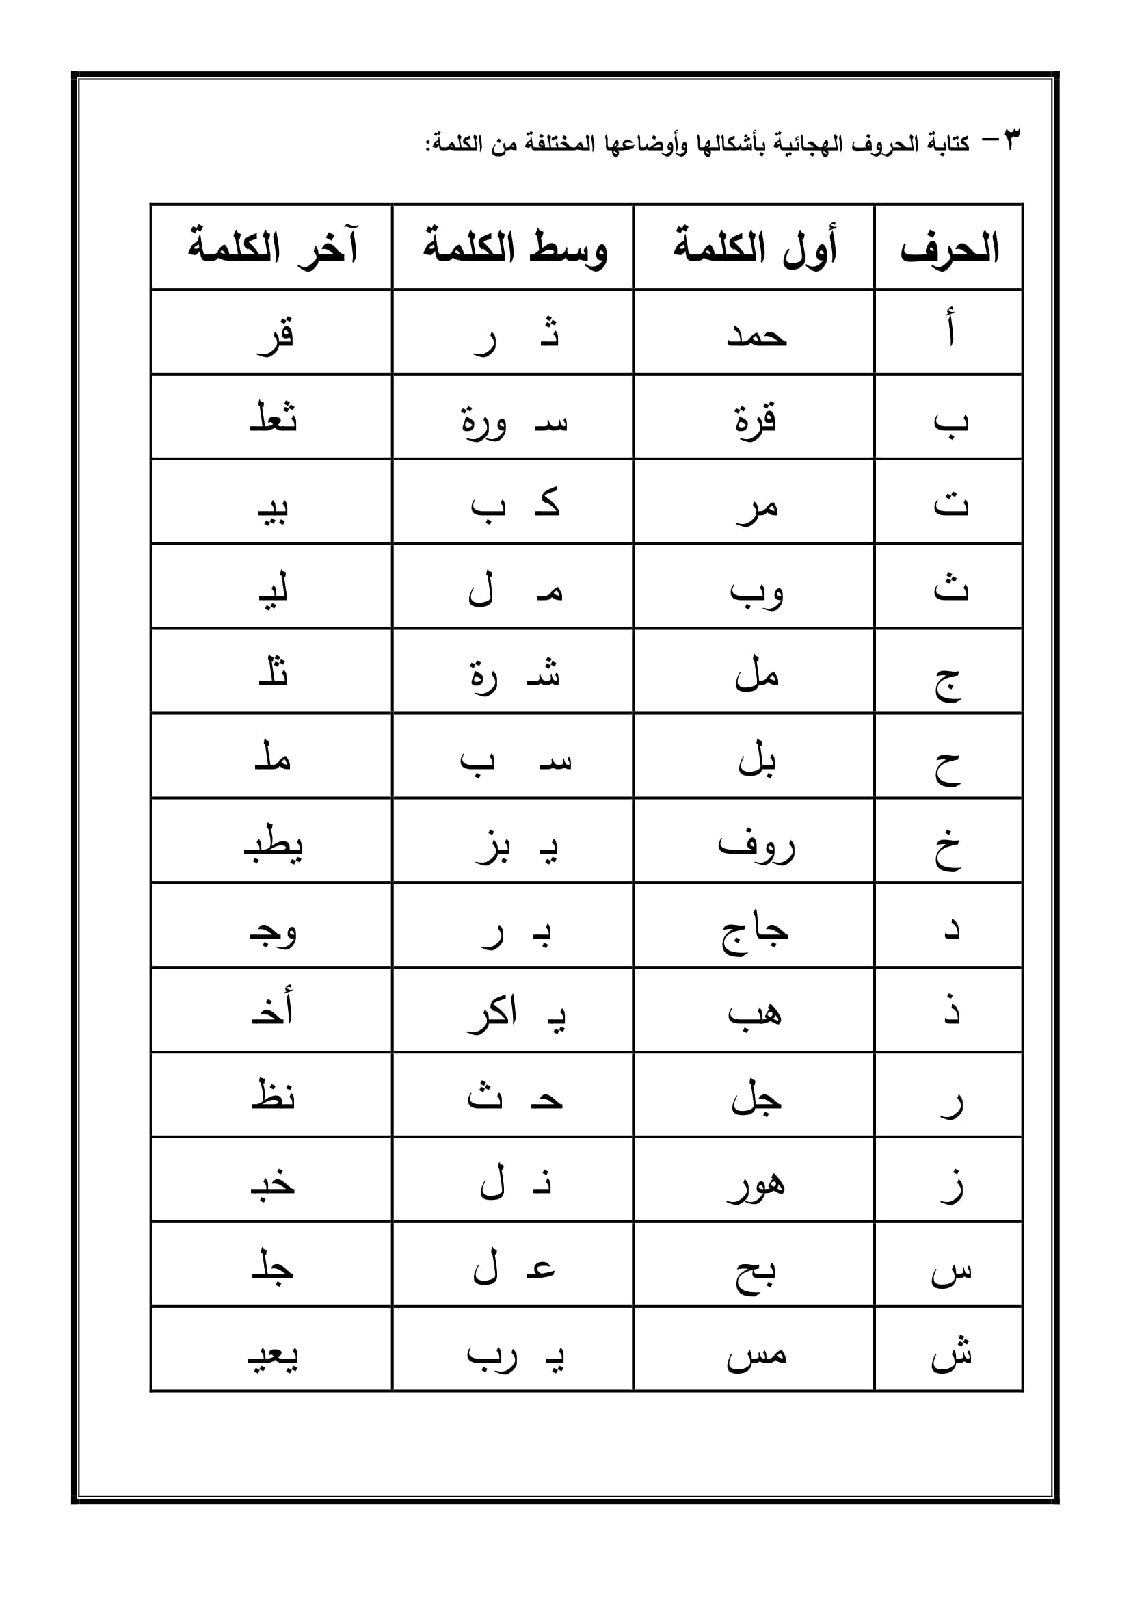 ٣- كتابة الحروف الهجائية بأشكالها وأوضاعها المختلفة من الكلمة:
الحرف أول الكلمة وسط الكلمة آخر الكلمة
أ حمد ثـ ر قر
ب قرة سـ ورة ثعلـ
ت مر كـ ب بيـ
ث وب مـ ل ليـ
ج مل شـ رة ثلـ
ح بل سـ ب ملـ
خ روف يـ بز يطبـ
د جاج بـ ر وجـ
ذ هب يـ اكر أخـ
ر جل حـ ث نظـ
ز هور نـ ل خبـ
س بح عـ ل جلـ
ش مس يـ رب يعيـ